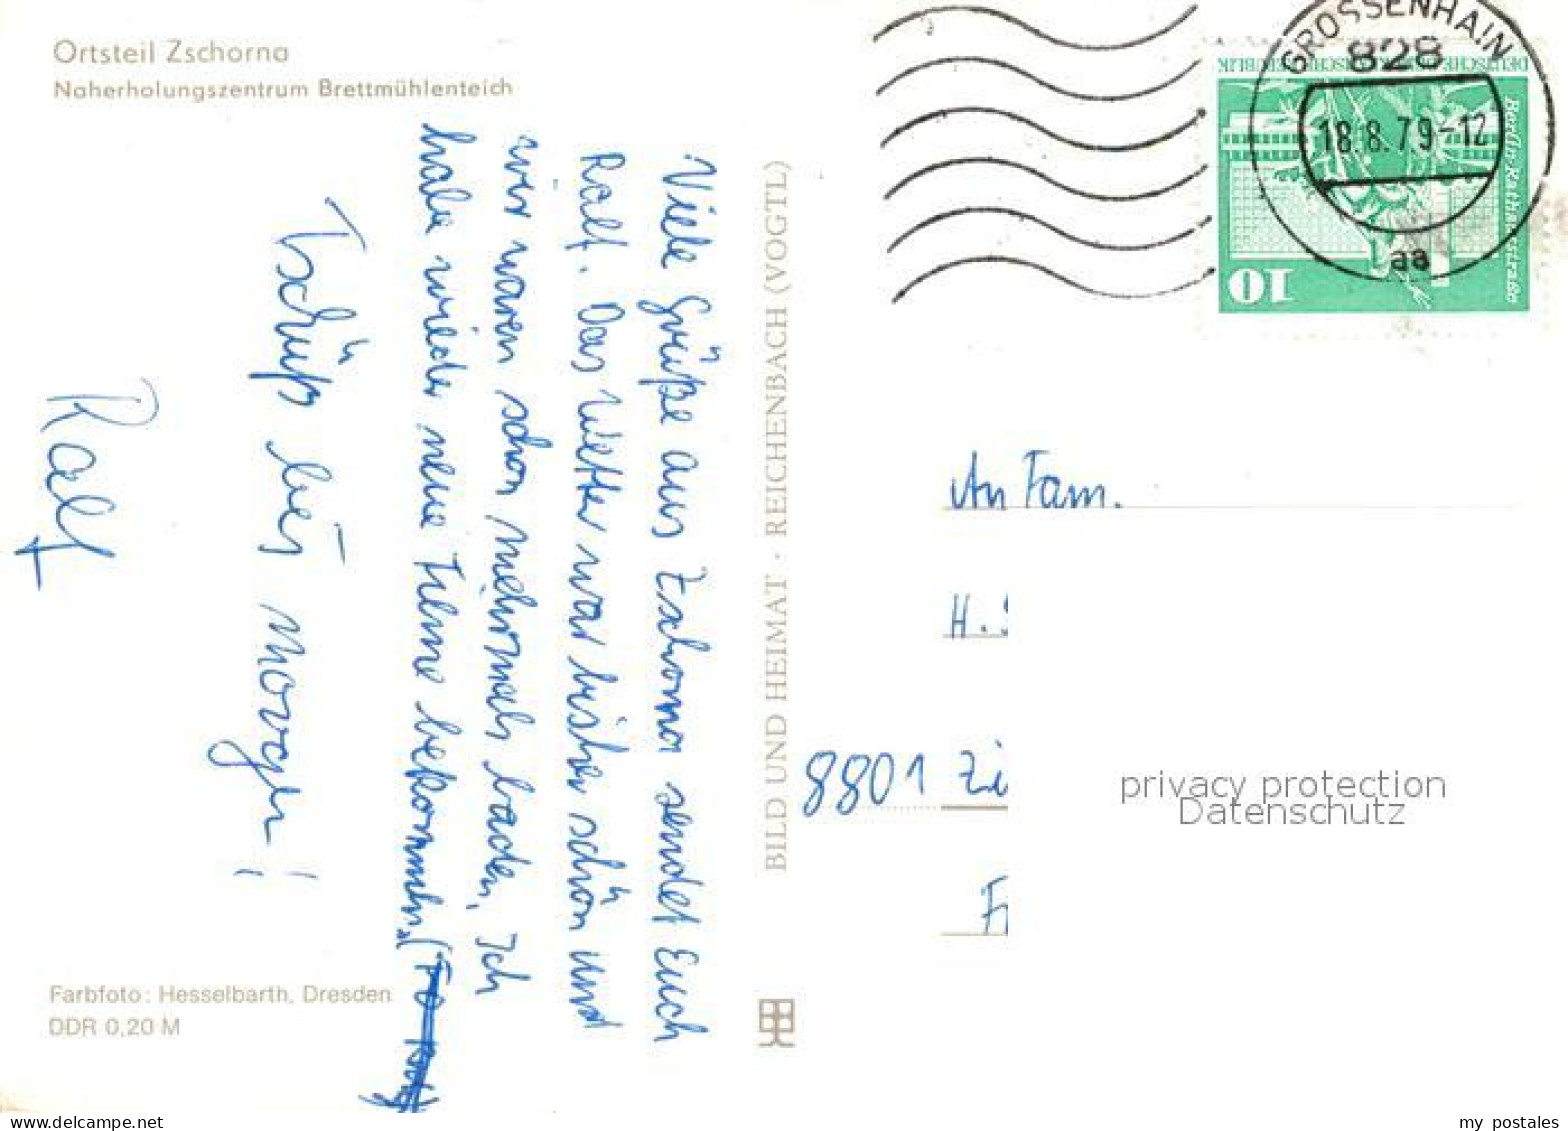 Ortsteil Zschorna
Naherholungszentrum Brettmühlenteich
Viele Grüße aus Zschorna sendet Euch
Ralf. Das Wetter war bisher schön und
wir waren schon mehrmals baden. Ich
habe wieder neue Filme bekommen.
Tschüß bis morgen!
Ralf
Farbfoto: Hesselbarth, Dresden
DDR 0,20 M
BILD UND HEIMAT · REICHENBACH (VOGTL)
GROSSENHAIN
828
18.8.79-12
aa
DEUTSCHE DEMOKRATISCHE REPUBLIK
Berlin·Rathausstraße
10
An Fam.
H.
8801 Zi
F
privacy protection
Datenschutz
my postales
www.delcampe.net